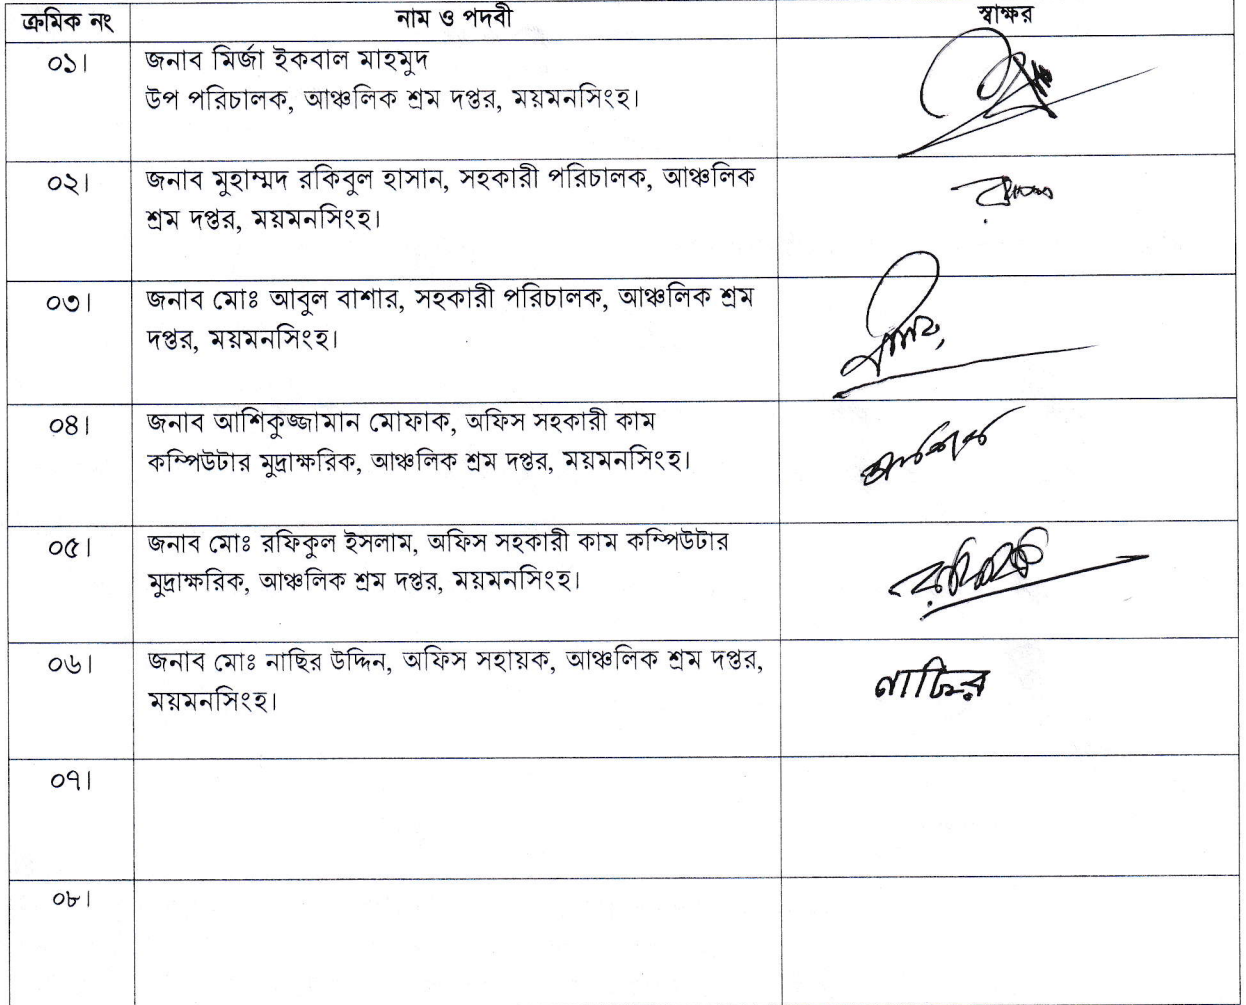 ক্রমিক নং নাম ও পদবী স্বাক্ষর
০১। জনাব মির্জা ইকবাল মাহমুদ
উপ পরিচালক, আঞ্চলিক শ্রম দপ্তর, ময়মনসিংহ।
০২। জনাব মুহাম্মদ রকিবুল হাসান, সহকারী পরিচালক, আঞ্চলিক
শ্রম দপ্তর, ময়মনসিংহ।
০৩। জনাব মোঃ আবুল বাশার, সহকারী পরিচালক, আঞ্চলিক শ্রম
দপ্তর, ময়মনসিংহ।
০৪। জনাব আশিকুজ্জামান মোফাক, অফিস সহকারী কাম
কম্পিউটার মুদ্রাক্ষরিক, আঞ্চলিক শ্রম দপ্তর, ময়মনসিংহ।
০৫। জনাব মোঃ রফিকুল ইসলাম, অফিস সহকারী কাম কম্পিউটার
মুদ্রাক্ষরিক, আঞ্চলিক শ্রম দপ্তর, ময়মনসিংহ।
০৬। জনাব মোঃ নাছির উদ্দিন, অফিস সহায়ক, আঞ্চলিক শ্রম দপ্তর,
ময়মনসিংহ। নাছির
০৭।
০৮।